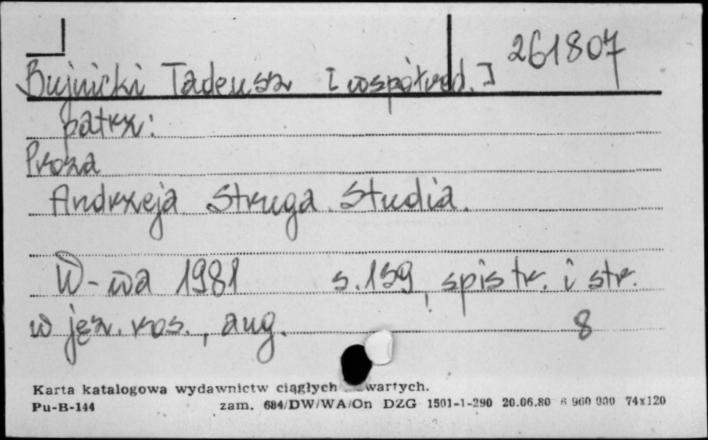 261807
Bujnicki Tadeusz [współred.]
patrz:
Proza
Andrzeja Struga. Studia.
W-wa 1981 s. 159, spis tr. i str.
w jęz. ros., ang.
8
Karta katalogowa wydawnictw ciągłych
Pu-B-144 zam. 684/DW/WA/On DZG 1501-1-290 20.06.80 6 960 000 74x120